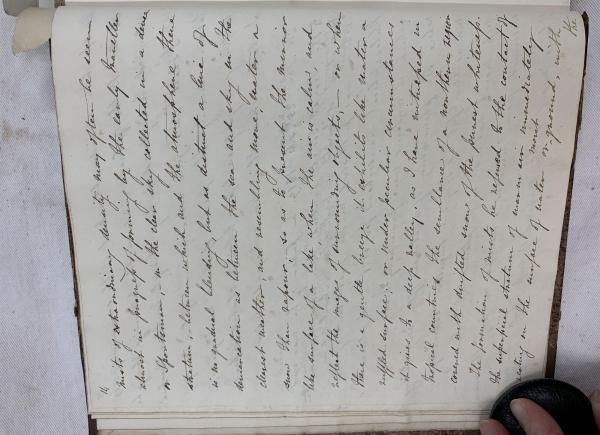 mists of extraordinary density may often be seen
almost in progress of forming by the early traveller
or Sportsman, in the clear sky collected in a dense
stratum, between which and the atmosphere there
is no gradual blending, but as distinct a line of
demarcation as between the sea and sky in the
clearest weather and resembling more water or
snow than vapour; so as to present the mirror
like surface of a lake, when the air is calm, and
reflect the images of surrounding objects, — or when
there is a gentle breeze it exhibits like water a
ruffled surface, or under peculiar circumstances
it gives to a deep valley, as I have witnessed in
tropical countries the semblance of a northern region
covered with drifted snow, of the purest whiteness.
The formation of mists he refused to the contact of
the superficial stratum of warm air immediately
resting on the surface of water or moist ground, with
the